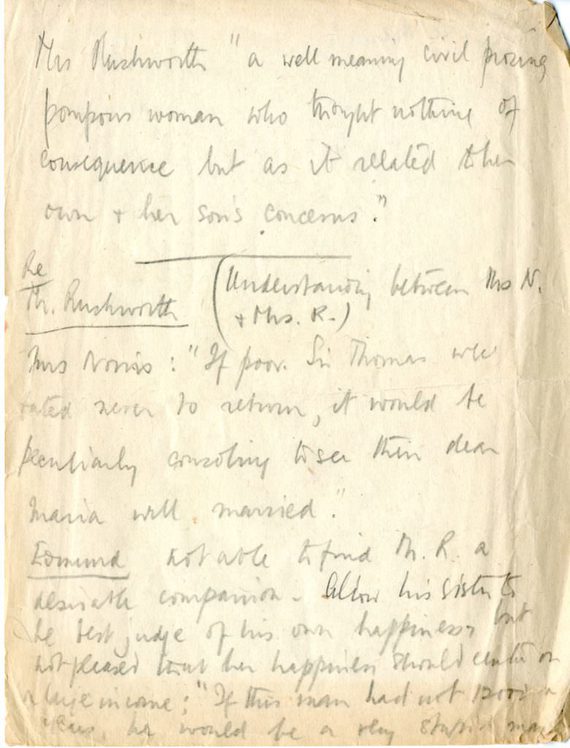 Mrs Rushworth "a well meaning civil prosing
pompous woman who thought nothing of
consequence but as it related to her
own & her son's concerns."
Re
Mr. Rushworth (Understanding between Mrs N.
& Mrs. R.)
Mrs Norris: "If poor Sir Thomas were
fated never to return, it would be
peculiarly consoling to see their dear
Maria well married."
Edmund not able to find Mr. R. a
desirable companion - Allow his sister to
be best judge of his own happiness, but
not pleased that her happiness should center on
a large income: "If this man had not 12000 a
year, he would be a very stupid man